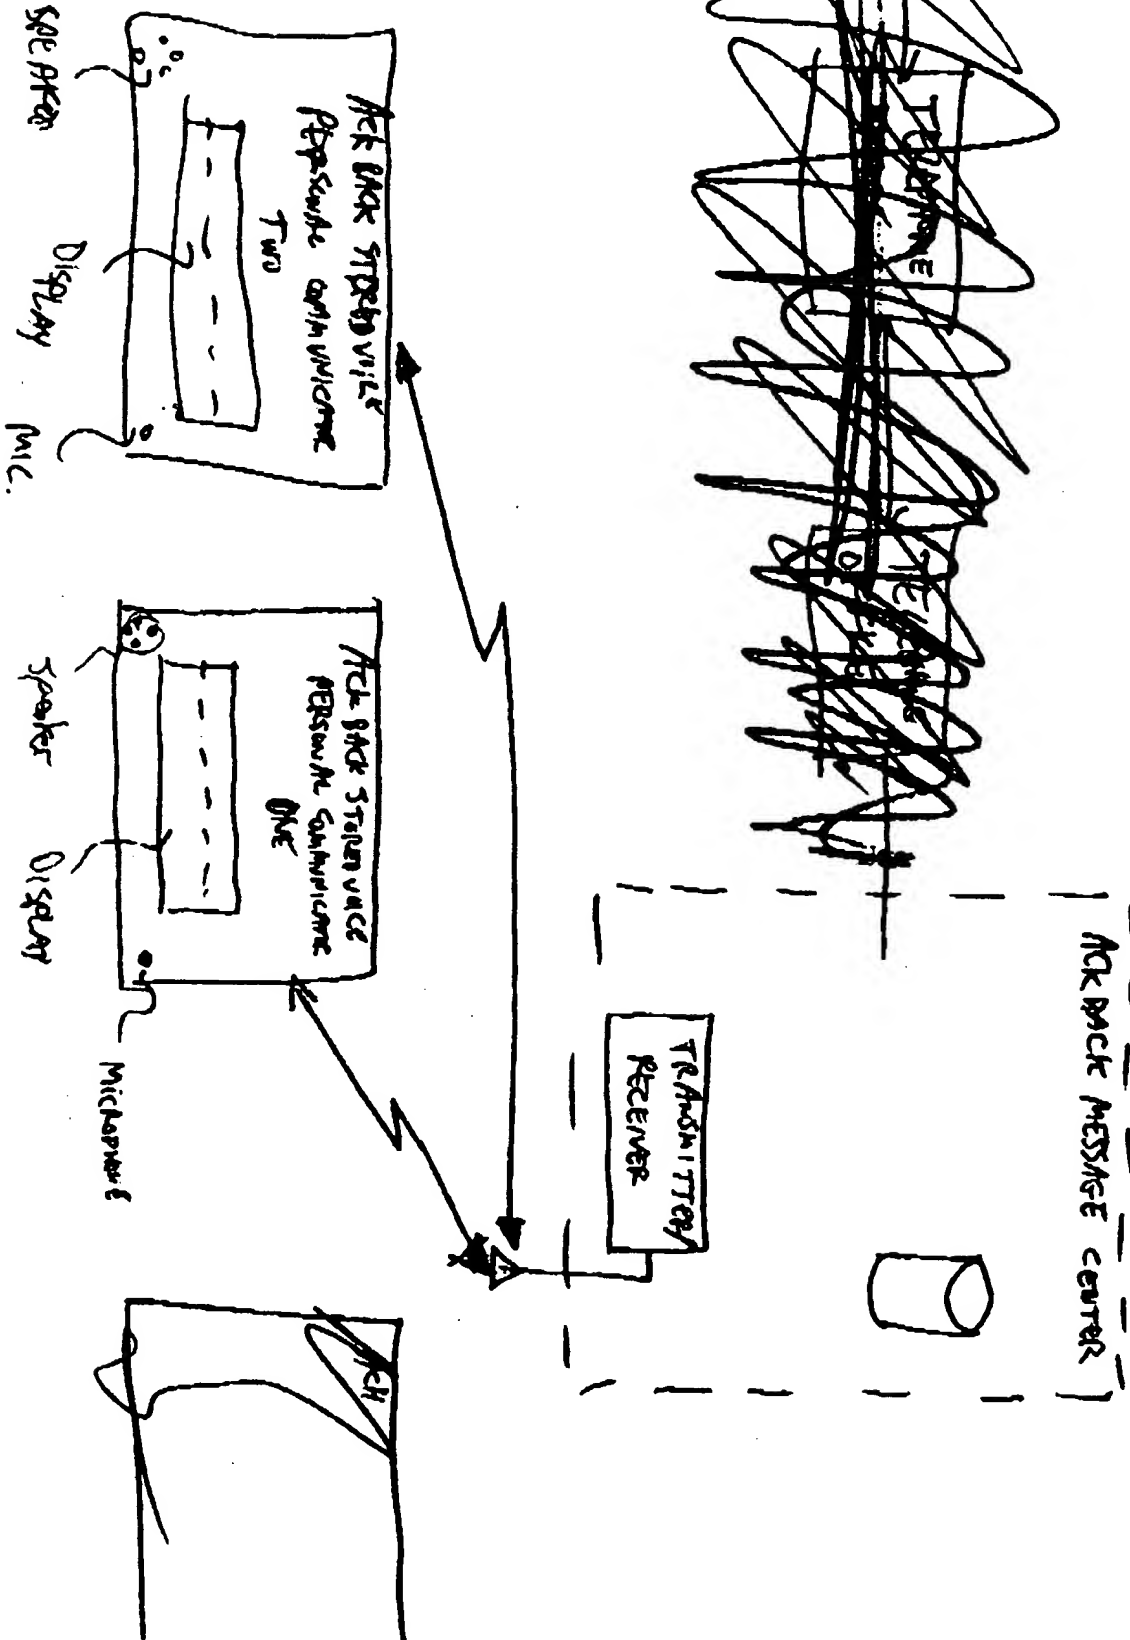 ACK BACK MESSAGE CENTER
TRANSMITTER/
RECEIVER
TELEPHONE
ACK BACK STORED VOICE
PERSONAL COMMUNICATOR
TWO
SPEAKER
DISPLAY
MIC.
ACK BACK STORED VOICE
PERSONAL COMMUNICATOR
ONE
Speaker
DISPLAY
MICROPHONE
ACK